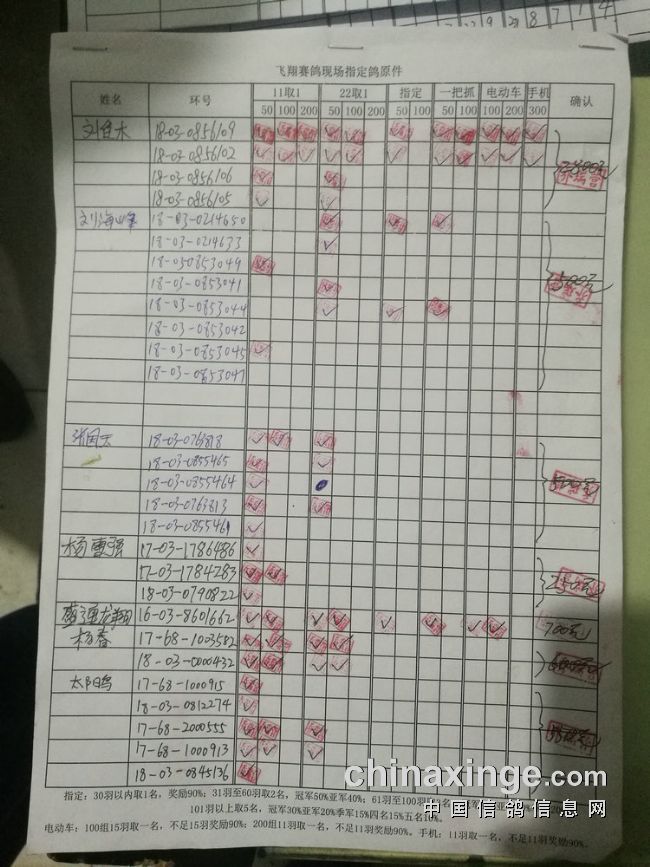 飞翔赛鸽现场指定鸽原件
姓名 环号 11取1 22取1 指定 一把抓 电动车 手机 确认
50 100 200 50 100 200 50 100 50 100 100 200 300
18-03-0856109
18-03-0856102
18-03-0856106
18-03-0856105
刘海峰 18-03-0214650
18-03-0214633
18-03-0853049
18-03-0853041
18-03-0853044
18-03-0853042
18-03-0853045
18-03-0853047
18-03-0761818
18-03-0855465
18-03-0855464
18-03-0763813
18-03-0855461
杨雪强 17-03-1786486
17-03-1784283
18-03-0790822
16-03-8601662 700元
杨春 17-68-1003582
18-03-0000432
太阳鸟 17-68-1000915
18-03-0812274
17-68-2000555
17-68-1000913
18-03-0845136
指定：30羽以内取1名，奖励90%；31羽至60羽取2名，冠军50%亚军40%；61羽至100羽
101羽以上取5名，冠军30%亚军20%季军15%四名15%五名10%。
电动车：100组15羽取一名，不足15羽奖励90%；200组11羽取一名，不足11羽奖励90%。手机：11羽取一名，不足11羽奖励90%。
chinaxinge.com
中国信鸽信息网